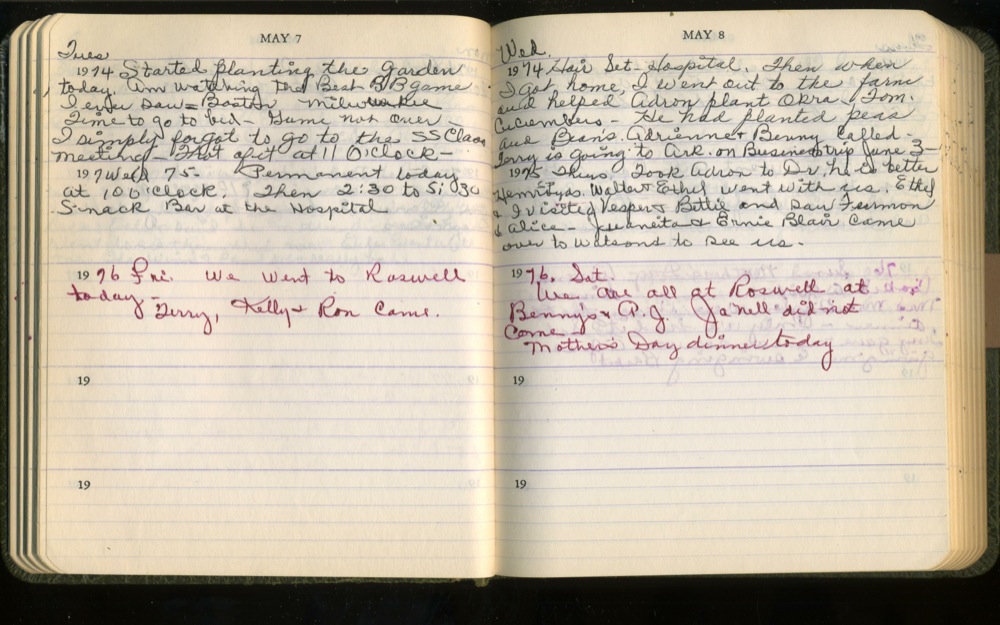 MAY 7
Tues
1974 Started planting the garden
today. Am watching the Best BB game
I ever saw = Boston Milwaukee
Time to go to bed - Game not over -
I simply forgot to go to the SS Class
meeting - That at 11 O'Clock -
1975 Wed 75 - Permanent today
at 10 O'clock; Then 2:30 to 5:30
Snack Bar at the Hospital
1976 Fri. We went to Roswell
today -
Terry, Kelly & Ron came.
19
19
MAY 8
Wed.
1974 Hair Set - Hospital. Then when
I got home, I went out to the farm
and helped Adron plant Okra, Tom.
Cucumbers - He had planted peas
and Beans. Adrienne & Benny called -
Terry is going to Ark. on Business trip June 3 -
1975 Thurs. Took Adron to Dr. he is better
Walter & Ethel went with us. Ethel
& I visited Vesper & Bettie and saw Furmon
& Alice - Juaneita & Ernie Blair came
over to Watsons to see us.
1976. Sat.
We are all at Roswell at
Benny's & P.J. Janell did not
come -
Mothers Day dinner today
19
19